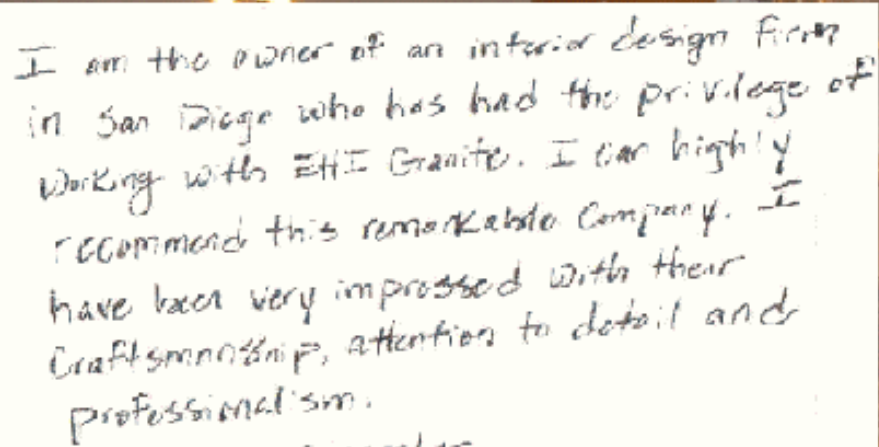 I am the owner of an interior design firm
in San Diego who has had the privilege of
working with EHI Granite. I can highly
recommend this remarkable company. I
have been very impressed with their
Craftsmanship, attention to detail and
professionalism.